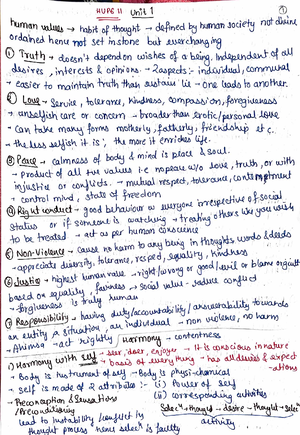 HUPE II Unit 1 ①
human values → habit of thought → defined by human society not divine
ordained hence not set in stone but everchanging
① Truth → doesn't depend on wishes of a being, Independent of all
desires, interests & opinions. → 2 aspects:- individual, communal
→ easier to maintain truth than sustain lie → One leads to another.
② Love → Service, tolerance, kindness, compassion, forgiveness
→ unselfish care or concern → broader than erotic/personal love
→ Can take many forms motherly, fatherly, friendship etc.
→ the less selfish it is, the more it enriches life.
③ Peace → calmness of body & mind is peace & soul.
→ Product of all +ve values i.e no peace w/o love, truth, or with
injustice or conflicts. → mutual respect, tolerance, contentment
→ control mind, state of freedom
④ Right conduct → good behaviour w everyone irrespective of social
status or if someone is watching → treating others like you wish
to be treated → act as per human conscience
⑤ Non-Violence → Cause no harm to any being in thoughts words & deeds
→ appreciate diversity, tolerance, respect, equality, kindness
⑥ Justice → highest human value → right/wrong or good/evil or blame or guilt
based on equality, fairness → Social value → reduce conflict
→ forgiveness is truly human
⑦ Responsibility → having duty/accountability/answerability towards
an entity, a situation, an individual → non violence, no harm
→ Ahimsa → act rightly Harmony → contentness
1) Harmony with Self → seer, doer, enjoyer → it is conscious in nature
→ basis of everything → has all desires & expect
-ations
→ Body is instrument of self → Body is physi-chemical
→ Self is made of 2 attributes :- (i) Power of self
(ii) corresponding activities
→ Preconception & Sensations
/Preconditioning
lead to instability/conflict by
thought process hence select is faulty
Select → thought → desire → thought → select
activity